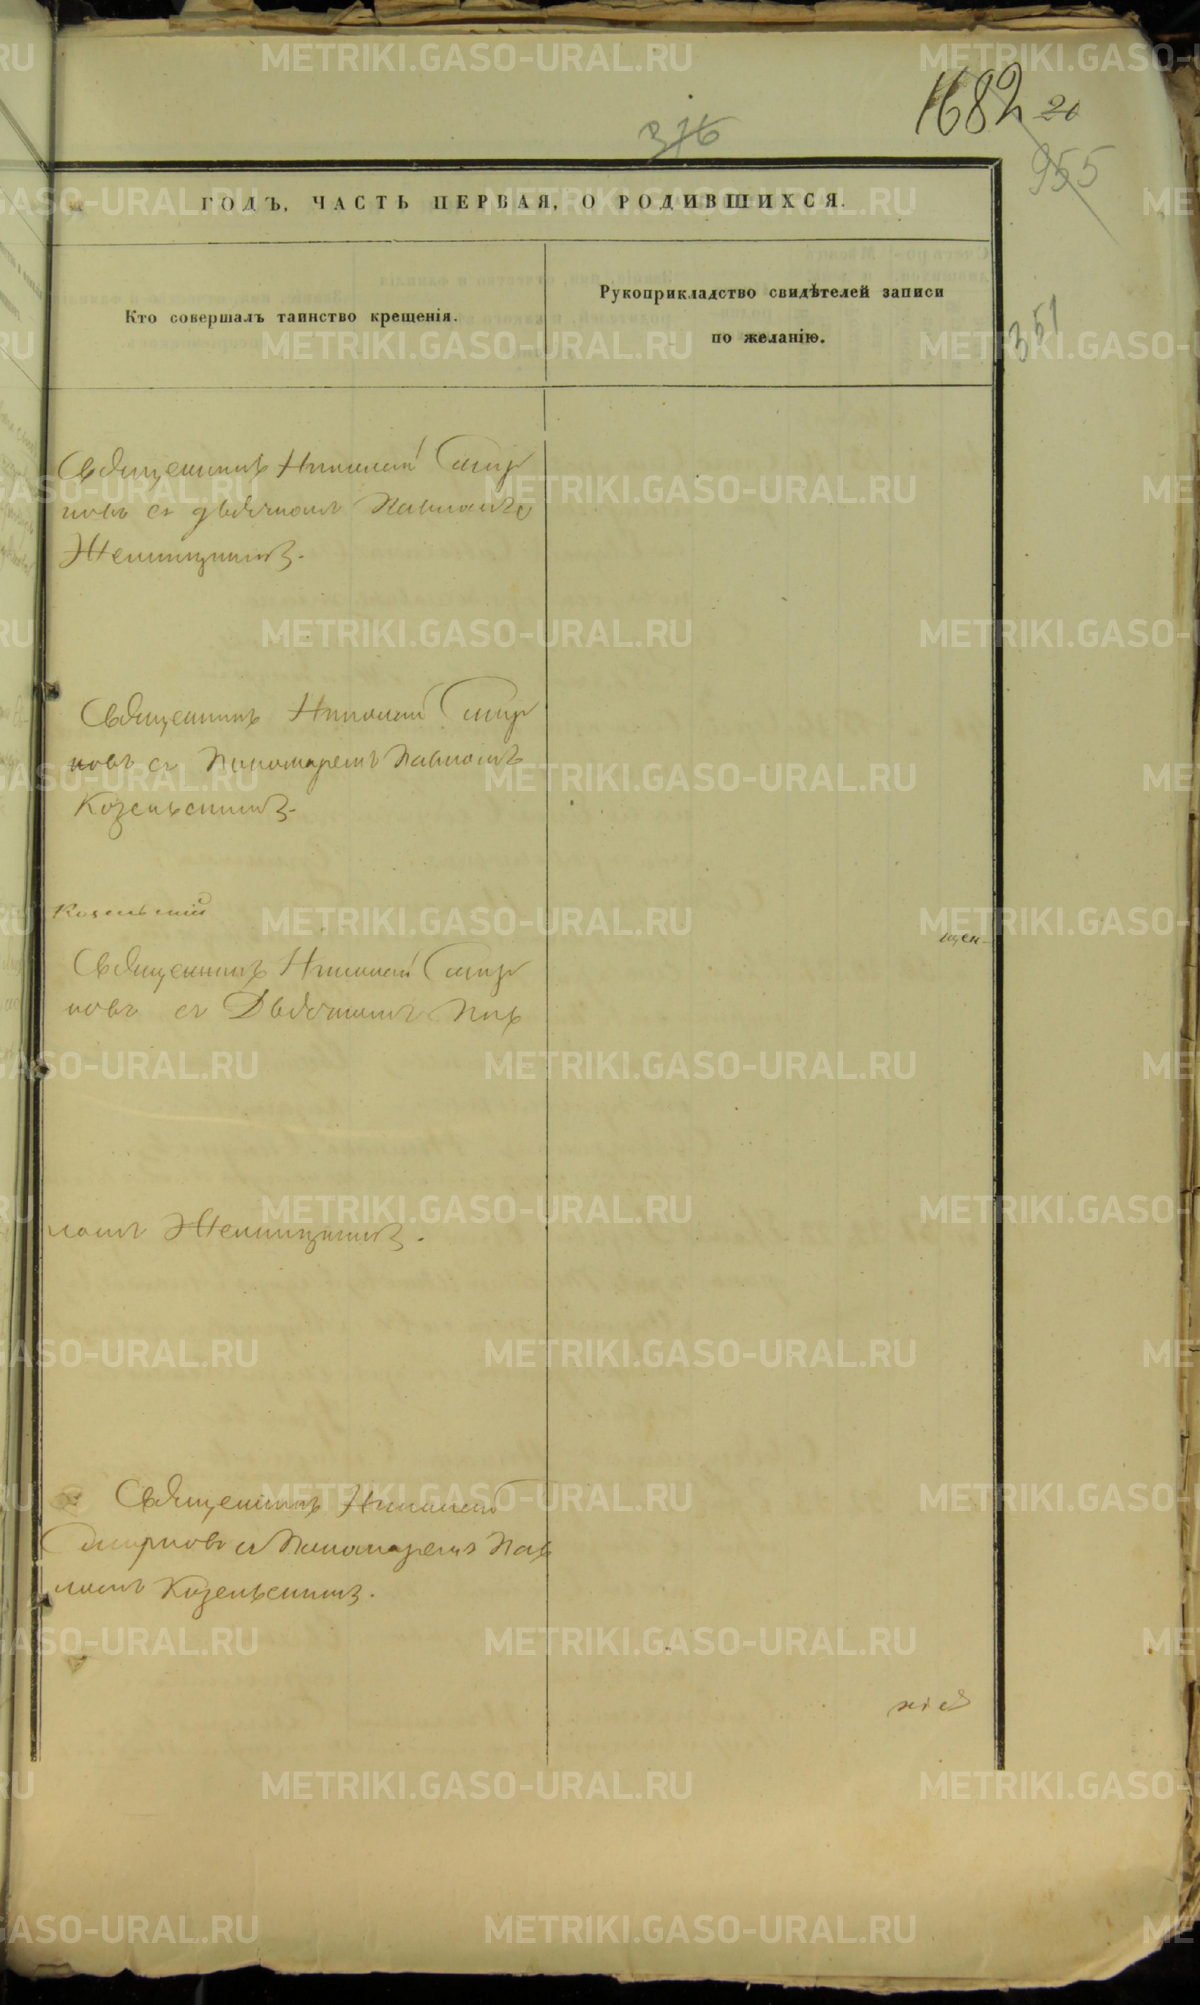 1682 20
376
955
ГОДЪ, ЧАСТЬ ПЕРВАЯ, О РОДИВШИХСЯ.
Кто совершалъ таинство крещенія.
Рукоприкладство свидѣтелей записи
по желанію.
351
Священникъ Николай Смир
новъ съ дьячкомъ Павломъ
Священникъ Николай Смир
новъ съ Пономаремъ Павломъ
Козельскимъ.
Козельскій
щен-
Священникъ Николай Смир
новъ съ
ломъ
Священникъ Николай
Смирновъ съ Пономаремъ Пав
ломъ Козельскимъ.
METRIKI.GASO-URAL.RU